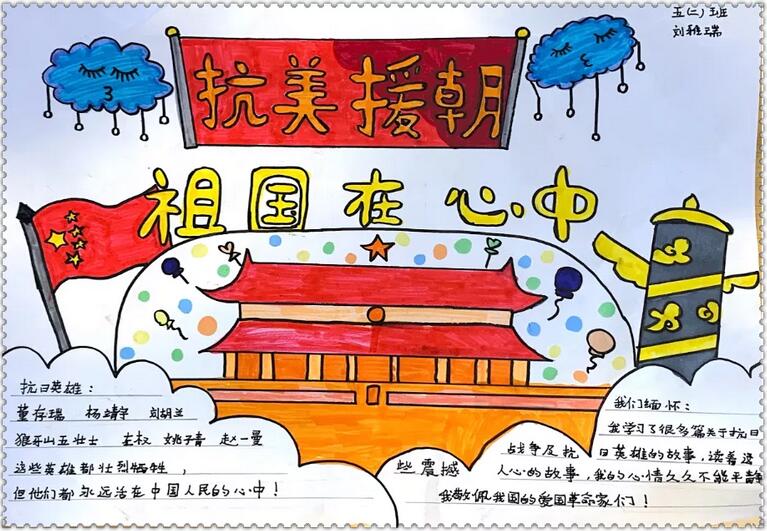 五(二)班
刘雅瑞
抗美援朝
祖国在心中
抗日英雄：
董存瑞 杨靖宇 刘胡兰
狼牙山五壮士 左权 姚子青 赵一曼
这些英雄都壮烈牺牲，
但他们都永远活在中国人民的心中！
我们缅怀：
我学习了很多篇关于抗日
战争及抗日英雄的故事，读着这
些震撼人心的故事，我的心情久久不能平静
我敬佩我国的爱国革命家们！